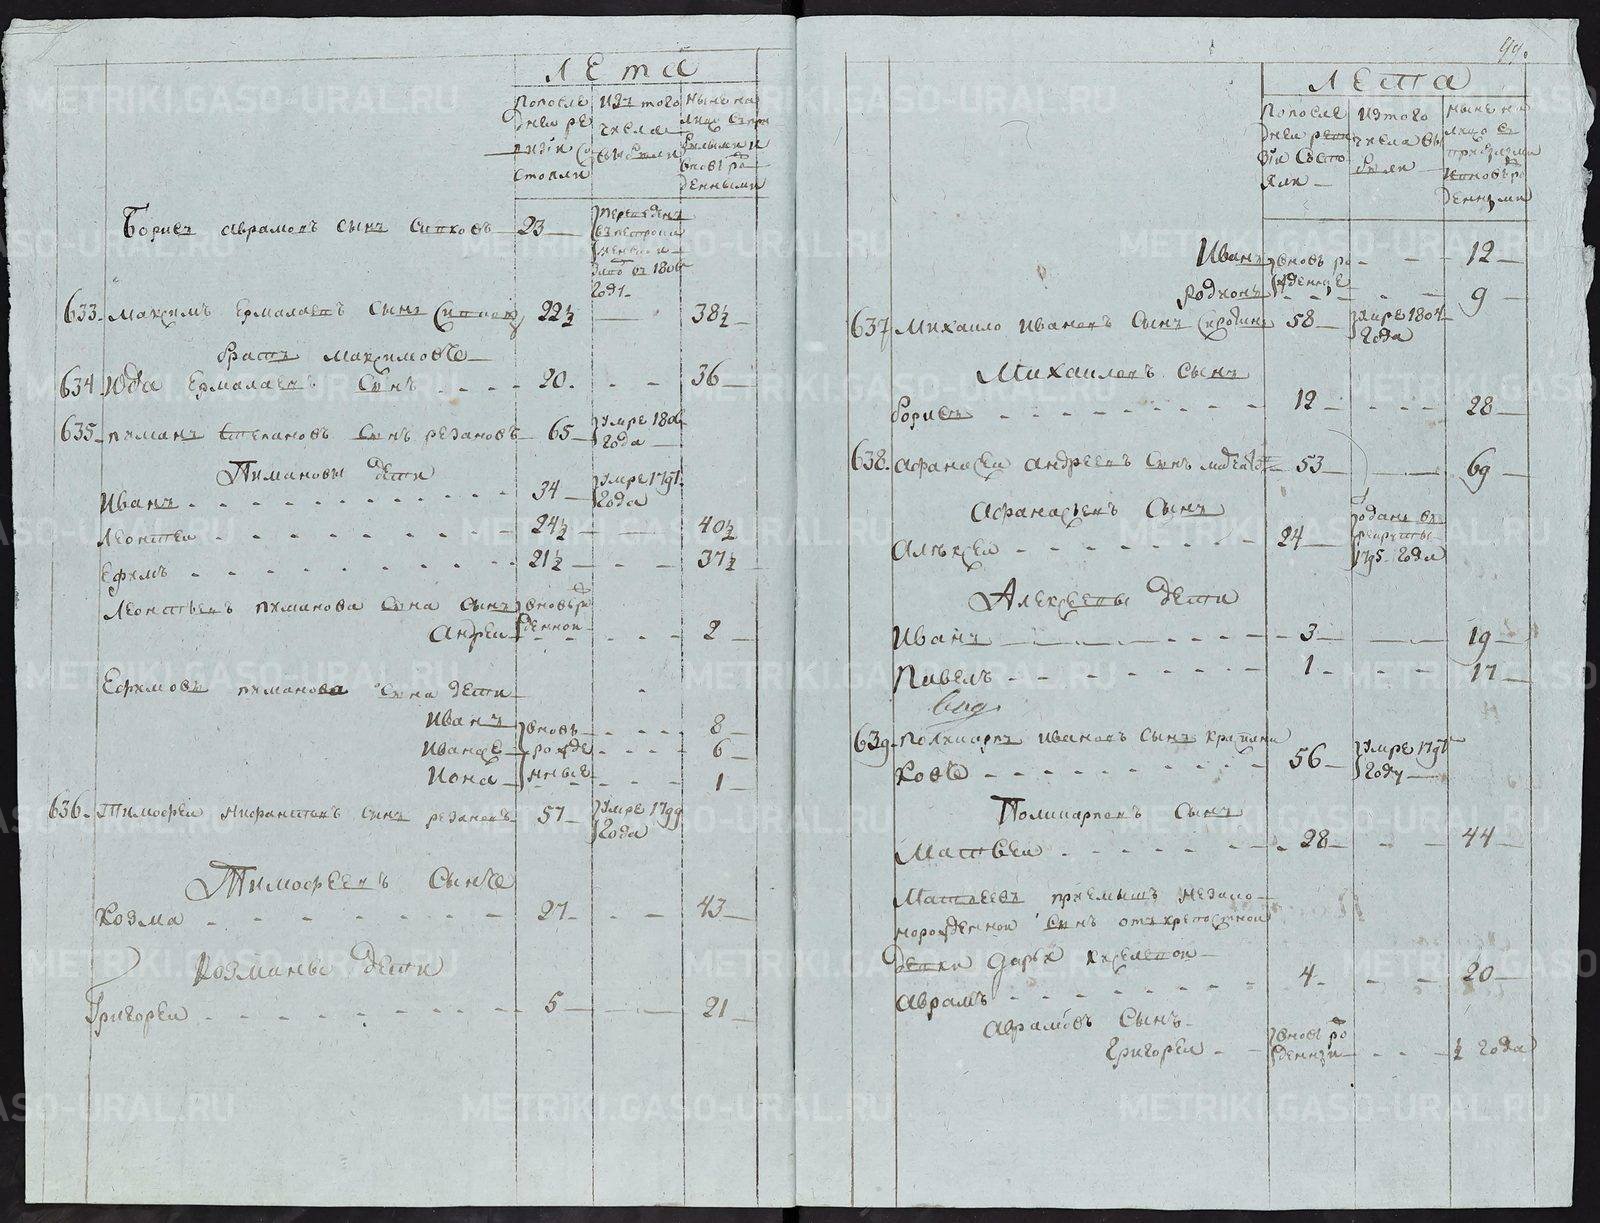 Лета
Попосле
дней ре
визiи со
стояли
Изъ того
числа
выбыли
Ныне на
лицо съ при
былыми и
вновь ро
денными
Борисъ Аврамовъ сынъ 23
Переведенъ
въ 1806
году
633. Максимъ Ермалаевъ сынъ 22½ — 38½
братъ Максимовъ
634. Юда Ермалаевъ сынъ 20. — 36
635. Пиманъ Степановъ сынъ Резановъ 65 умре 180
года
Пимановы дети
Иванъ 34 умре 1797
года
Леонтей 24½ — 40½
Ефимъ 21½ — 37½
Леонтьевъ Пиманова сына сынъ вновь ро
Андрей денной 2
Ефимовы Пиманова сына дети
Иванъ вновь 8
рожде 6
Иона нные 1
636. Тимофей Нифантовъ сынъ Резановъ 57 умре 1799
года
Тимофеевъ сынъ
Козма 27 — 43
Козмины дети
Григорей 5 — 21
99.
Лета
Попосле
дней реви
зiи состо
яли
Изтого
числа вы
были
Ныне на
лицо с
прибылыми
и вновь ро
денными
Иванъ вновь ро 12
Родионъ денные 9
637 Михайло Ивановъ сынъ 58 умре 1804
года
Михайловъ сынъ
Борисъ 12 — 28
638. Афанасей Андреевъ сынъ 53 — 69
Афанасьевъ сынъ
Алексей 24 отданъ въ
рекруты
1795 года
Алексеевы дети
Иванъ 3 — 19
Павелъ 1 — 17
639. Поликарпъ Ивановъ сынъ
ковъ 56 умре 1797
году
Поликарповъ сынъ
Матвей 28 — 44
Матвеевъ приемышъ незако
норожденной сынъ отъ крепостной
девки Дарьи Киселевой
Аврамъ 4 — 20
Аврамовъ сынъ
Григорей вновь ро
денный ½ года
METRIKI.GASO-URAL.RU